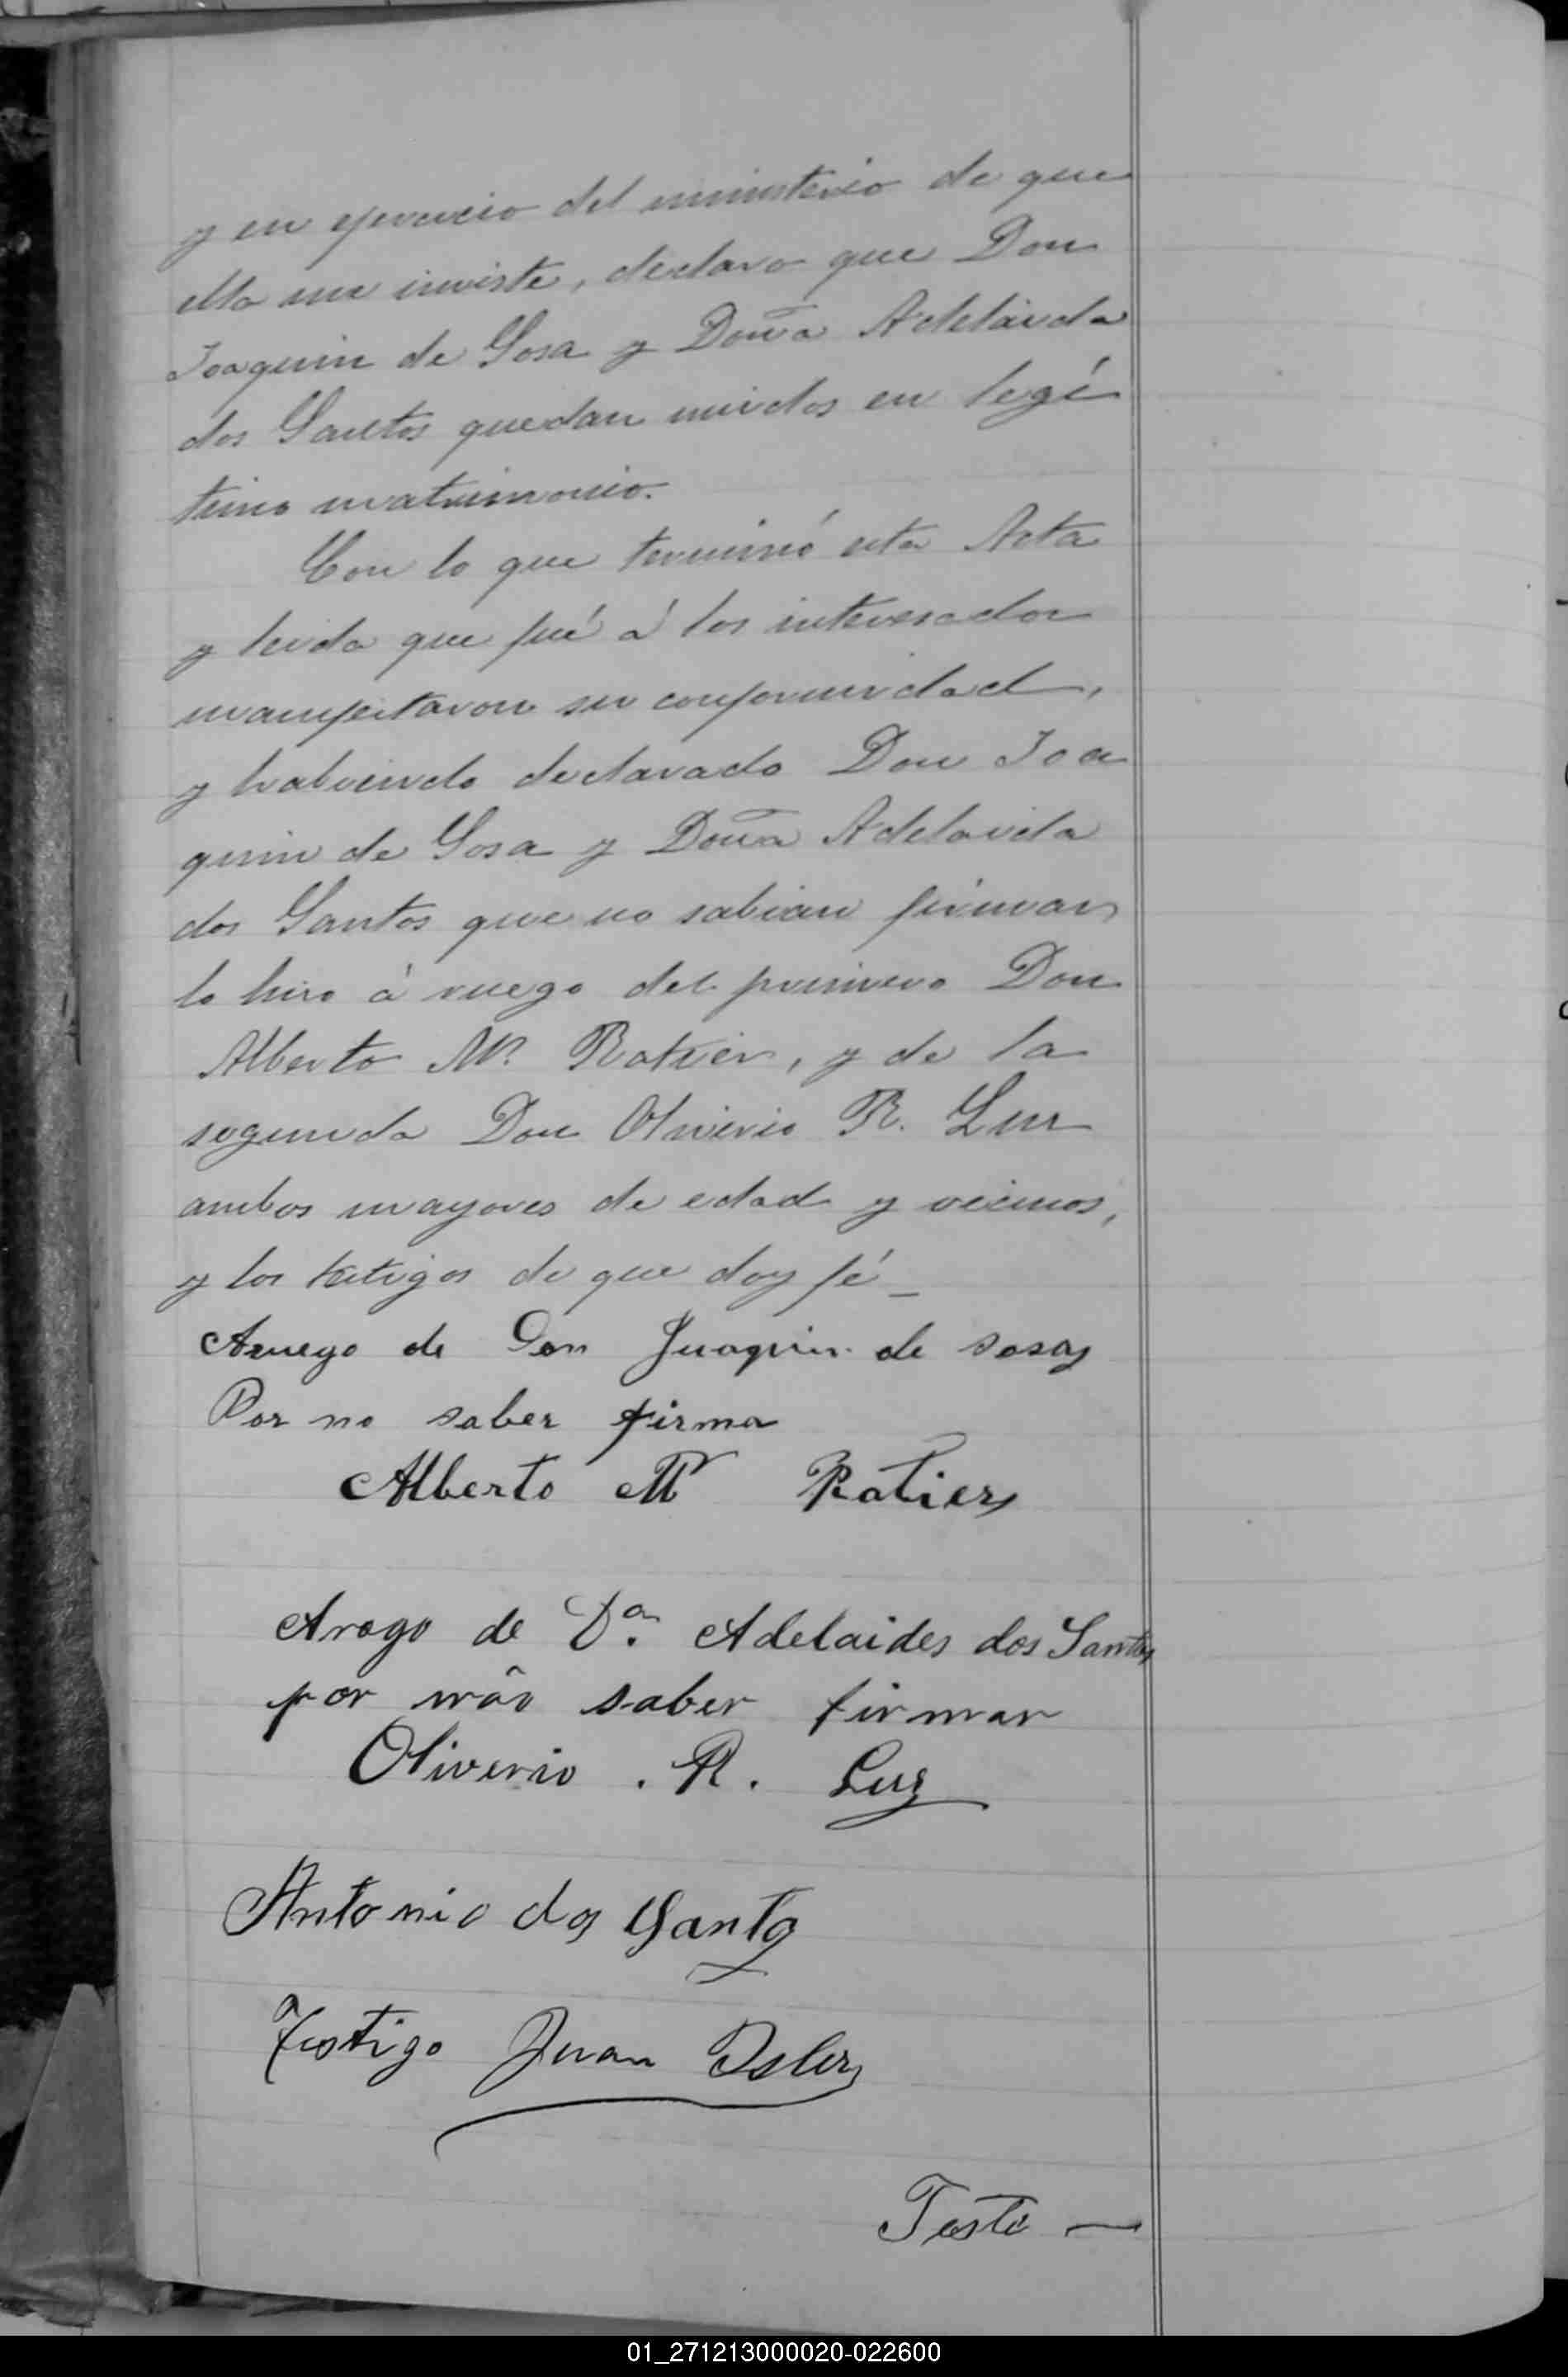 y en ejercicio del ministerio de que
ella me inviste, declaro que Don
Joaquin de Sosa y Doña Adelaida
dos Santos quedan unidos en legi
timo matrimonio.
Con lo que terminó esta Acta
y leida que fué á los interesados
manifestaron su conformidad,
y habiendo declarado Don Joa
quin de Sosa y Doña Adelaida
dos Santos que no sabian firmar,
lo hizo á ruego del primero Don
Alberto M. Ratier, y de la
segunda Don Oliverio R. Luz
ambos mayores de edad y vecinos,
y los testigos de que doy fé_
Aruego de Don Juaquin de Sosa
Por no saber firma
Alberto M Ratier
Arogo de Dª. Adelaides dos Santos
por não saber firmar
Oliverio . R . Luz
Antonio dos Santo
Testigo Juan Isler
Testi —
01_271213000020-022600